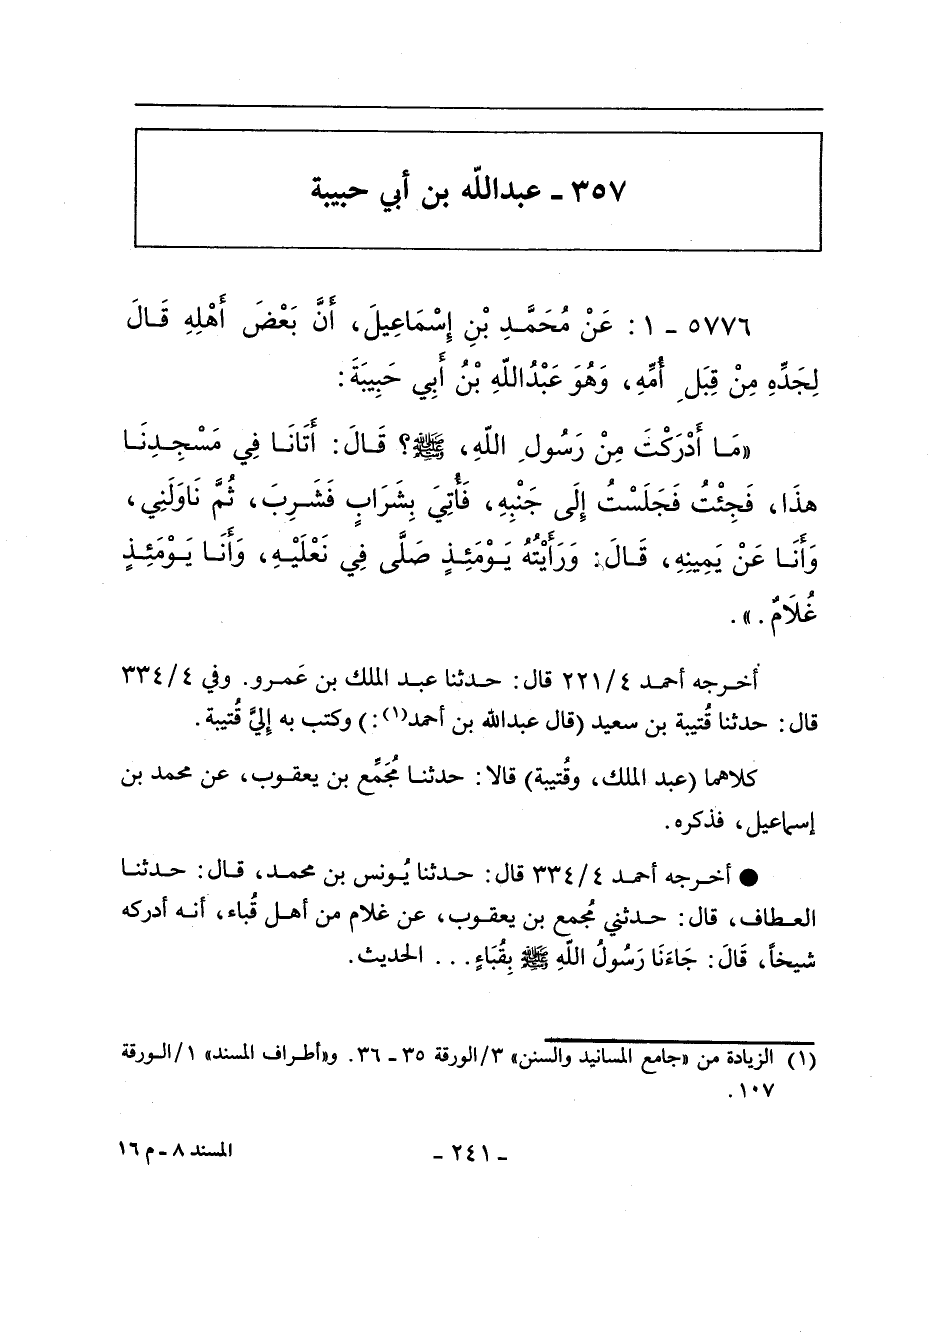 ٣٥٧ ـ عبدالله بن أبي حبيبة
٥٧٧٦ ـ ١ : عَنْ مُحَمَّدِ بْنِ إِسْمَاعِيلَ، أَنَّ بَعْضَ أَهْلِهِ قَالَ
لِجَدِّهِ مِنْ قِبَلِ أُمِّهِ، وَهُوَ عَبْدُاللهِ بْنُ أَبِي حَبِيبَةَ:
«مَا أَدْرَكْتَ مِنْ رَسُولِ اللهِ، ﷺ؟ قَالَ: أَتَانَا فِي مَسْجِدِنَا
هذَا، فَجِئْتُ فَجَلَسْتُ إِلَى جَنْبِهِ، فَأُتِيَ بِشَرَابٍ فَشَرِبَ، ثُمَّ نَاوَلَنِي،
وَأَنَا عَنْ يَمِينِهِ، قَالَ: وَرَأَيْتُهُ يَوْمَئِذٍ صَلَّى فِي نَعْلَيْهِ، وَأَنَا يَوْمَئِذٍ
غُلَامٌ.».
أخرجه أحمد ٢٢١/٤ قال: حدثنا عبد الملك بن عَمرو. وفي ٣٣٤/٤
قال: حدثنا قُتيبة بن سعيد (قال عبدالله بن أحمد(١):) وكتب به إِليَّ قُتيبة.
كلاهما (عبد الملك، وقُتيبة) قالا: حدثنا مُجَمِّع بن يعقوب، عن محمد بن
إسماعيل، فذكره.
● أخرجه أحمد ٣٣٤/٤ قال: حدثنا يُونس بن محمد، قال: حدثنا
العطاف، قال: حدثني مُجمع بن يعقوب، عن غلام من أهل قُباء، أنه أدركه
شيخاً، قَالَ: جَاءَنَا رَسُولُ اللهِ ﷺ بِقُبَاءٍ... الحديث.
(١) الزيادة من «جامع المسانيد والسنن» ٣/الورقة ٣٥ ـ ٣٦. و«أطراف المسند» ١/الورقة
١٠٧.
ـ ٢٤١ ـ
المسند ٨ ـ م ١٦